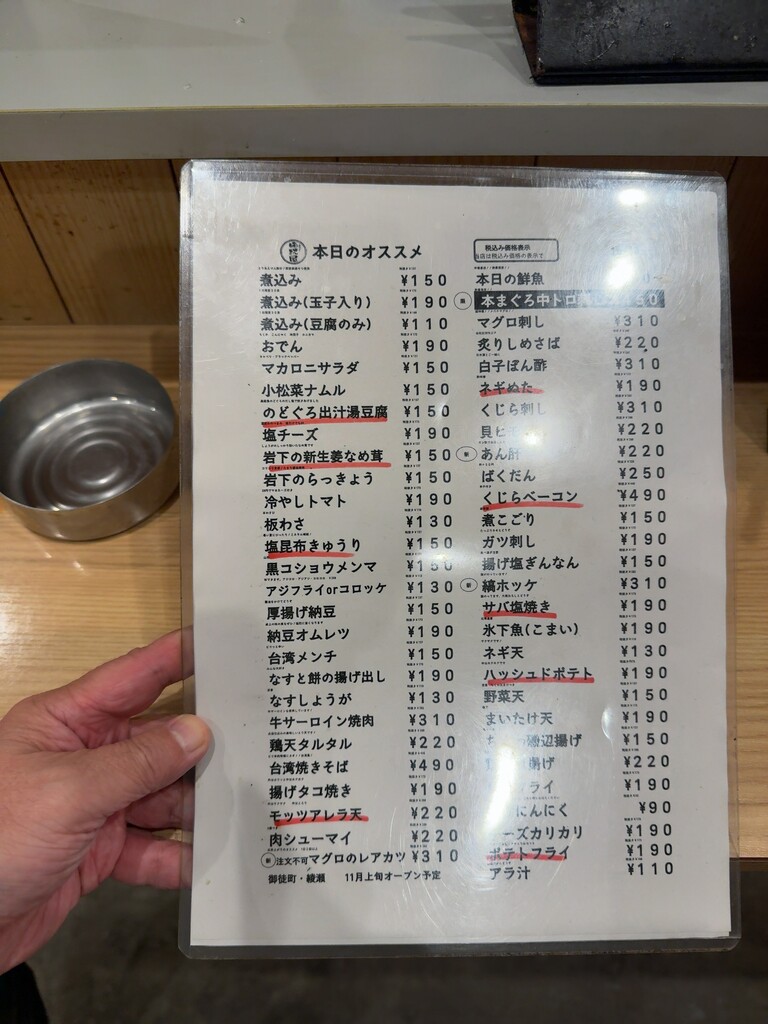 本日のオススメ
煮込み ¥150
煮込み(玉子入り) ¥190
煮込み(豆腐のみ) ¥110
おでん ¥190
マカロニサラダ ¥150
小松菜ナムル ¥150
のどぐろ出汁湯豆腐 ¥150
塩チーズ ¥190
岩下の新生姜なめ茸 ¥150
岩下のらっきょう ¥150
冷やしトマト ¥190
板わさ ¥130
塩昆布きゅうり ¥150
黒コショウメンマ ¥150
アジフライorコロッケ ¥130
厚揚げ納豆 ¥150
納豆オムレツ ¥190
台湾メンチ ¥150
なすと餅の揚げ出し ¥190
なすしょうが ¥130
牛サーロイン焼肉 ¥310
鶏天タルタル ¥220
台湾焼きそば ¥490
揚げタコ焼き ¥190
モッツアレラ天 ¥220
肉シューマイ ¥220
新 注文不可マグロのレアカツ ¥310
御徒町・綾瀬 11月上旬オープン予定
税込み価格表示
当店は税込み価格の表示で
本日の鮮魚
本まぐろ中トロ
マグロ刺し ¥310
炙りしめさば ¥220
白子ぽん酢 ¥310
ネギぬた ¥190
くじら刺し ¥310
¥220
新 あん肝 ¥220
ばくだん ¥250
くじらベーコン ¥490
煮こごり ¥150
ガツ刺し ¥190
揚げ塩ぎんなん ¥150
新 縞ホッケ ¥310
サバ塩焼き ¥190
氷下魚(こまい) ¥190
ネギ天 ¥130
ハッシュドポテト ¥190
野菜天 ¥150
まいたけ天 ¥190
磯辺揚げ ¥150
揚げ ¥220
ライ ¥190
にんにく ¥90
ーズカリカリ ¥190
ポテトフライ ¥190
アラ汁 ¥110